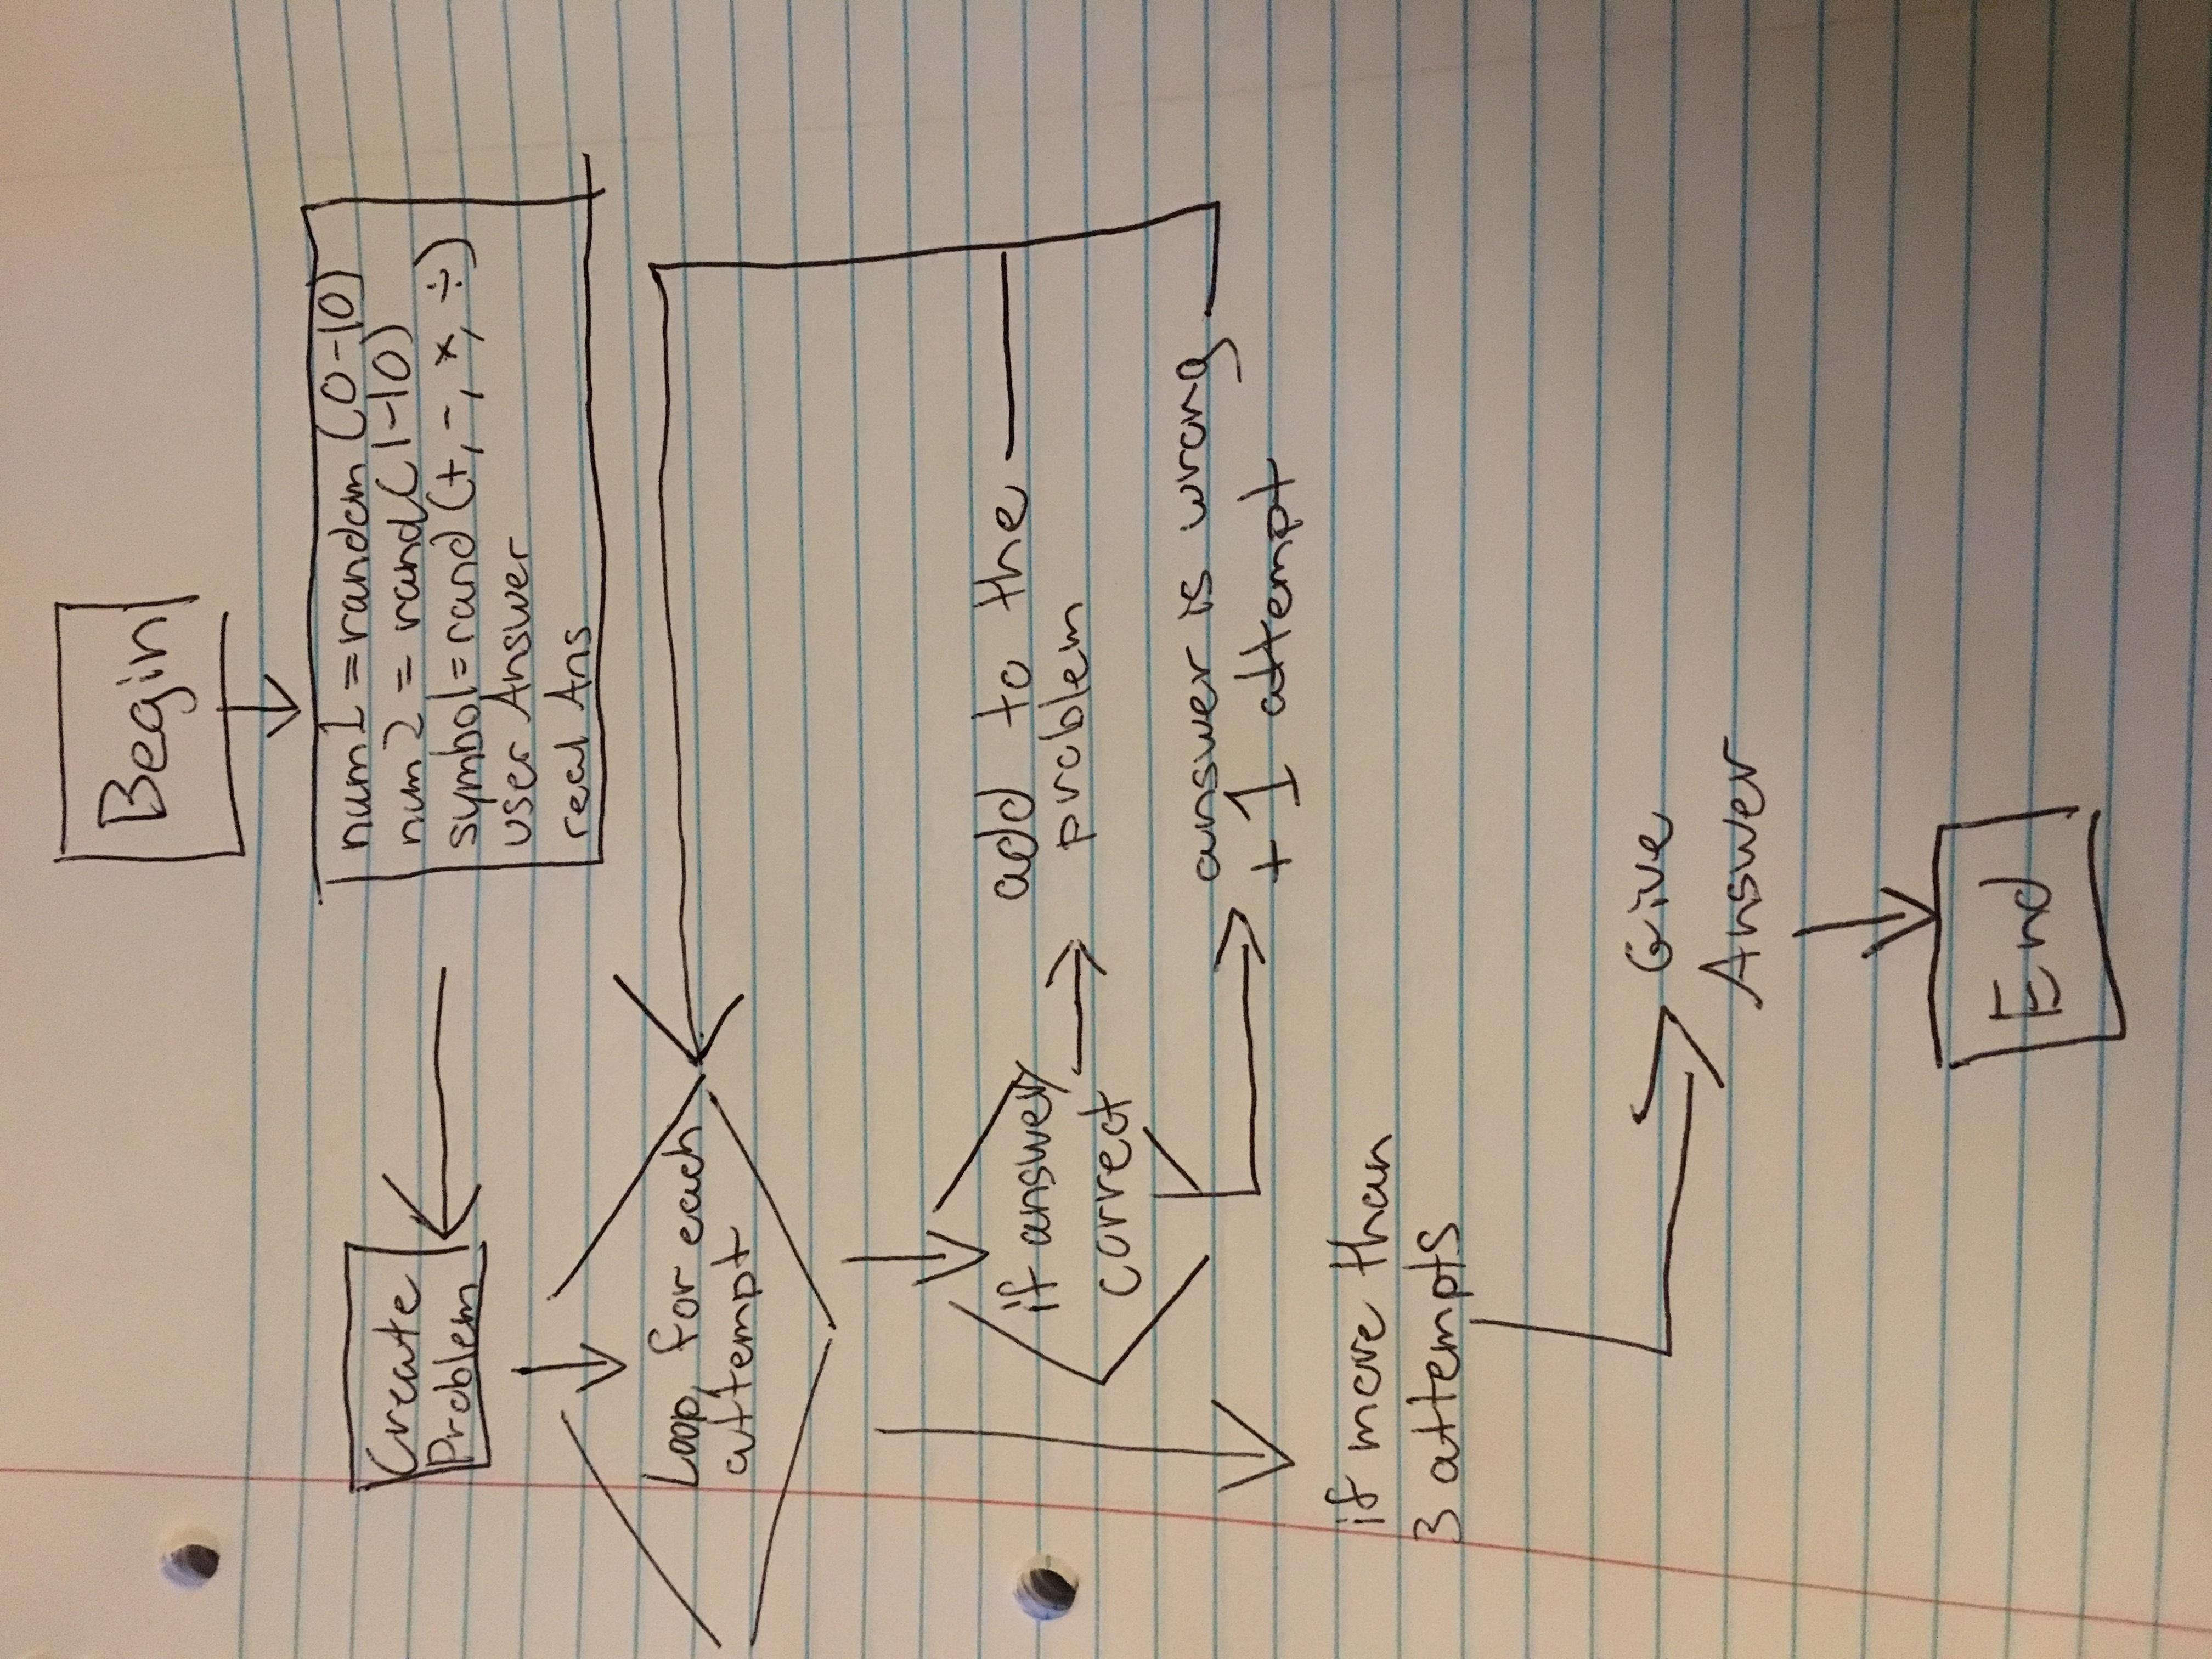 Begin
num1 = random (0-10)
num2 = rand(1-10)
symbol = rand (+, -, ×, ÷)
user Answer
real Ans
Create
Problem
Loop, for each
attempt
if answer
correct
add to the
problem
answer is wrong
+ 1 attempt
if more than
3 attempts
Give
Answer
End